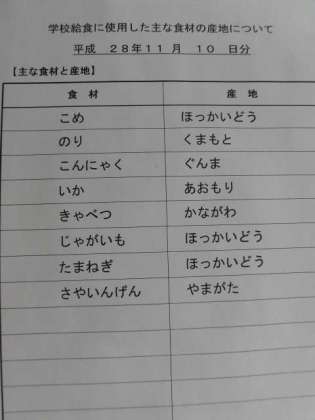 学校給食に使用した主な食材の産地について
平成 28年11月 10 日分
【主な食材と産地】
食 材 産 地
こめ ほっかいどう
のり くまもと
こんにゃく ぐんま
いか あおもり
きゃべつ かながわ
じゃがいも ほっかいどう
たまねぎ ほっかいどう
さやいんげん やまがた